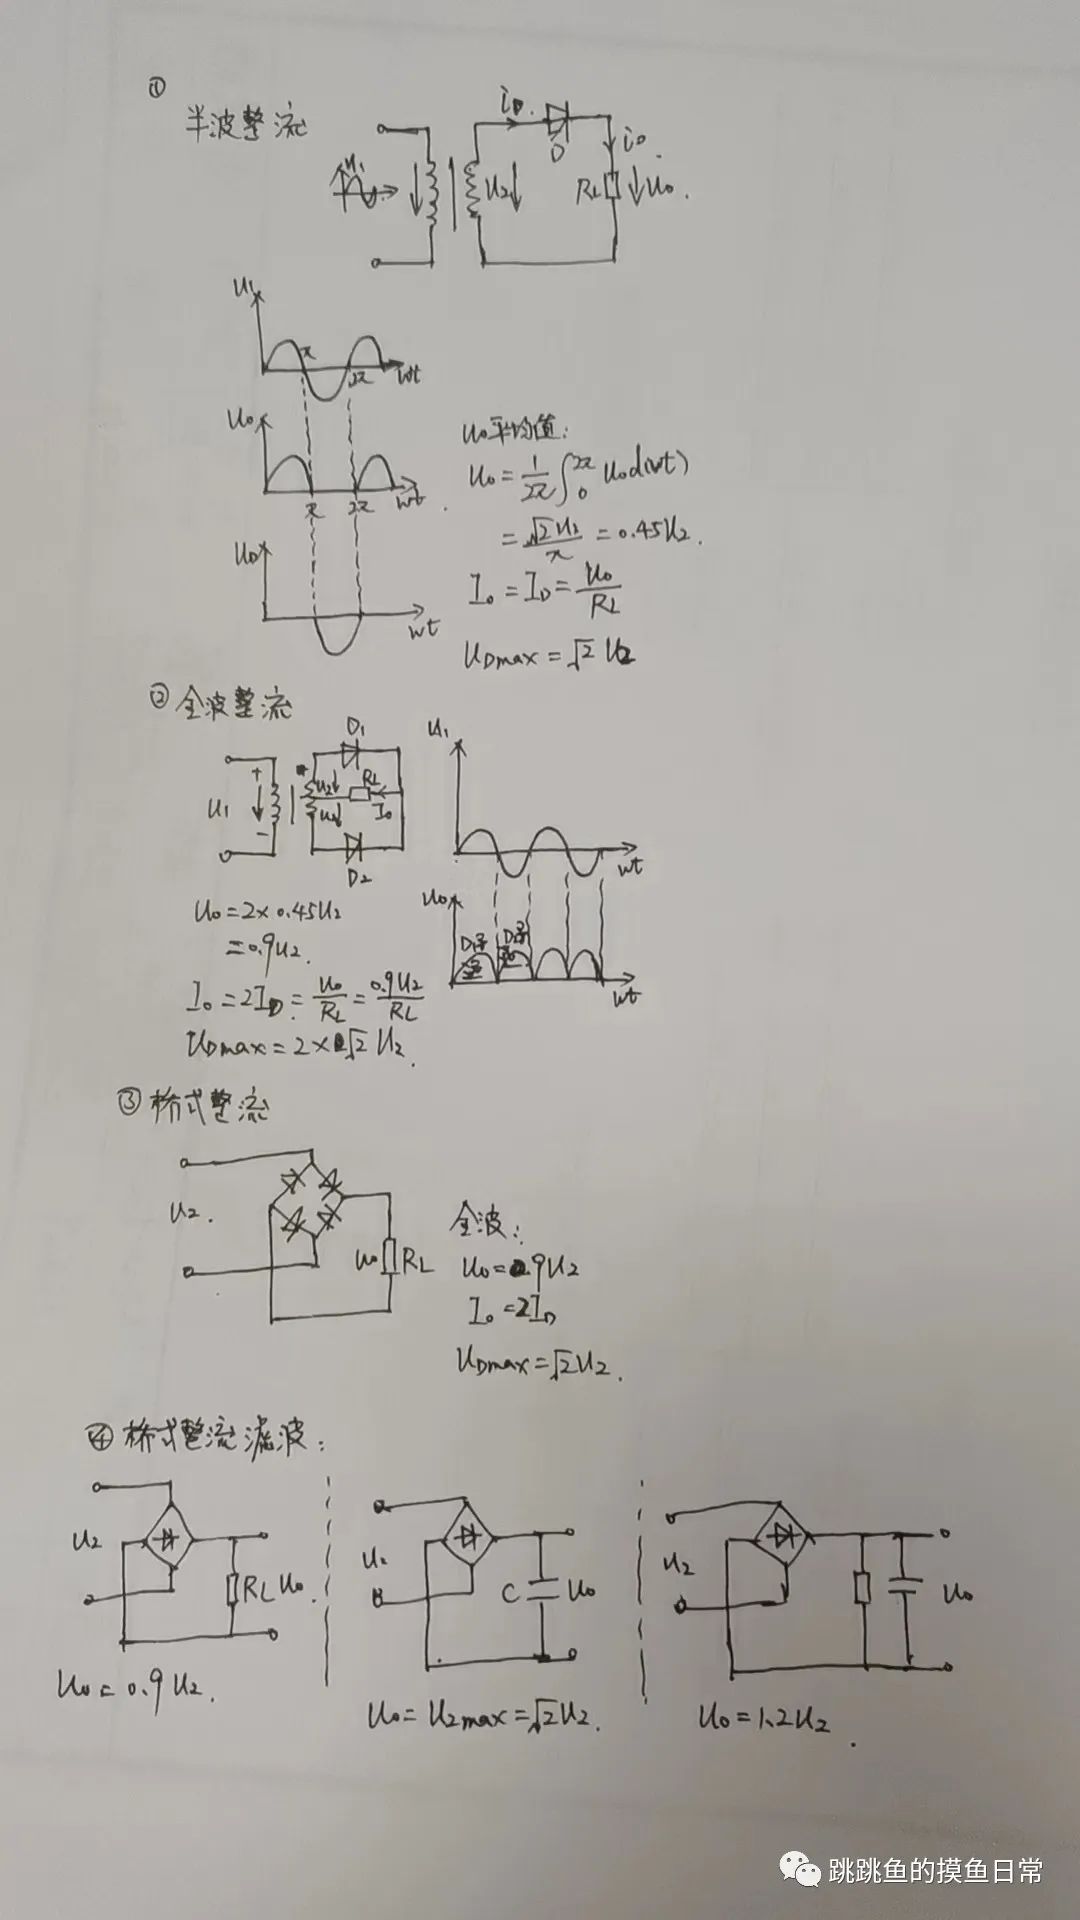 ①
半波整流
iD.
D
io.
u1
U2
RL
Uo.
U1
π
2π
wt
Uo
π
2π
wt
Uo
wt
Uo平均值:
Uo=1/2π∫0 2π Uod(wt)
=√2U2/π=0.45U2.
Io=ID=Uo/RL
UDmax=√2U2
②全波整流
D1
U1
+
-
U2
U2
RL
Io
D2
U1
wt
Uo
wt
Uo=2×0.45U2
=0.9U2.
Io=2ID=Uo/RL=0.9U2/RL
UDmax=2×√2U2.
③桥式整流
U2.
Uo
RL
全波:
Uo=0.9U2
Io=2ID
UDmax=√2U2.
④桥式整流滤波:
U2
RL
Uo.
Uo=0.9U2.
U2
C
Uo
Uo=U2max=√2U2.
U2
Uo
Uo=1.2U2.
跳跳鱼的摸鱼日常